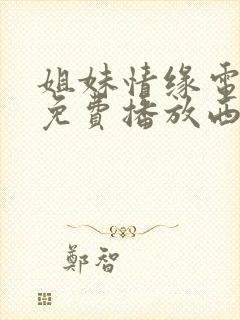 姐妹情缘電
免費播放西
鄭智